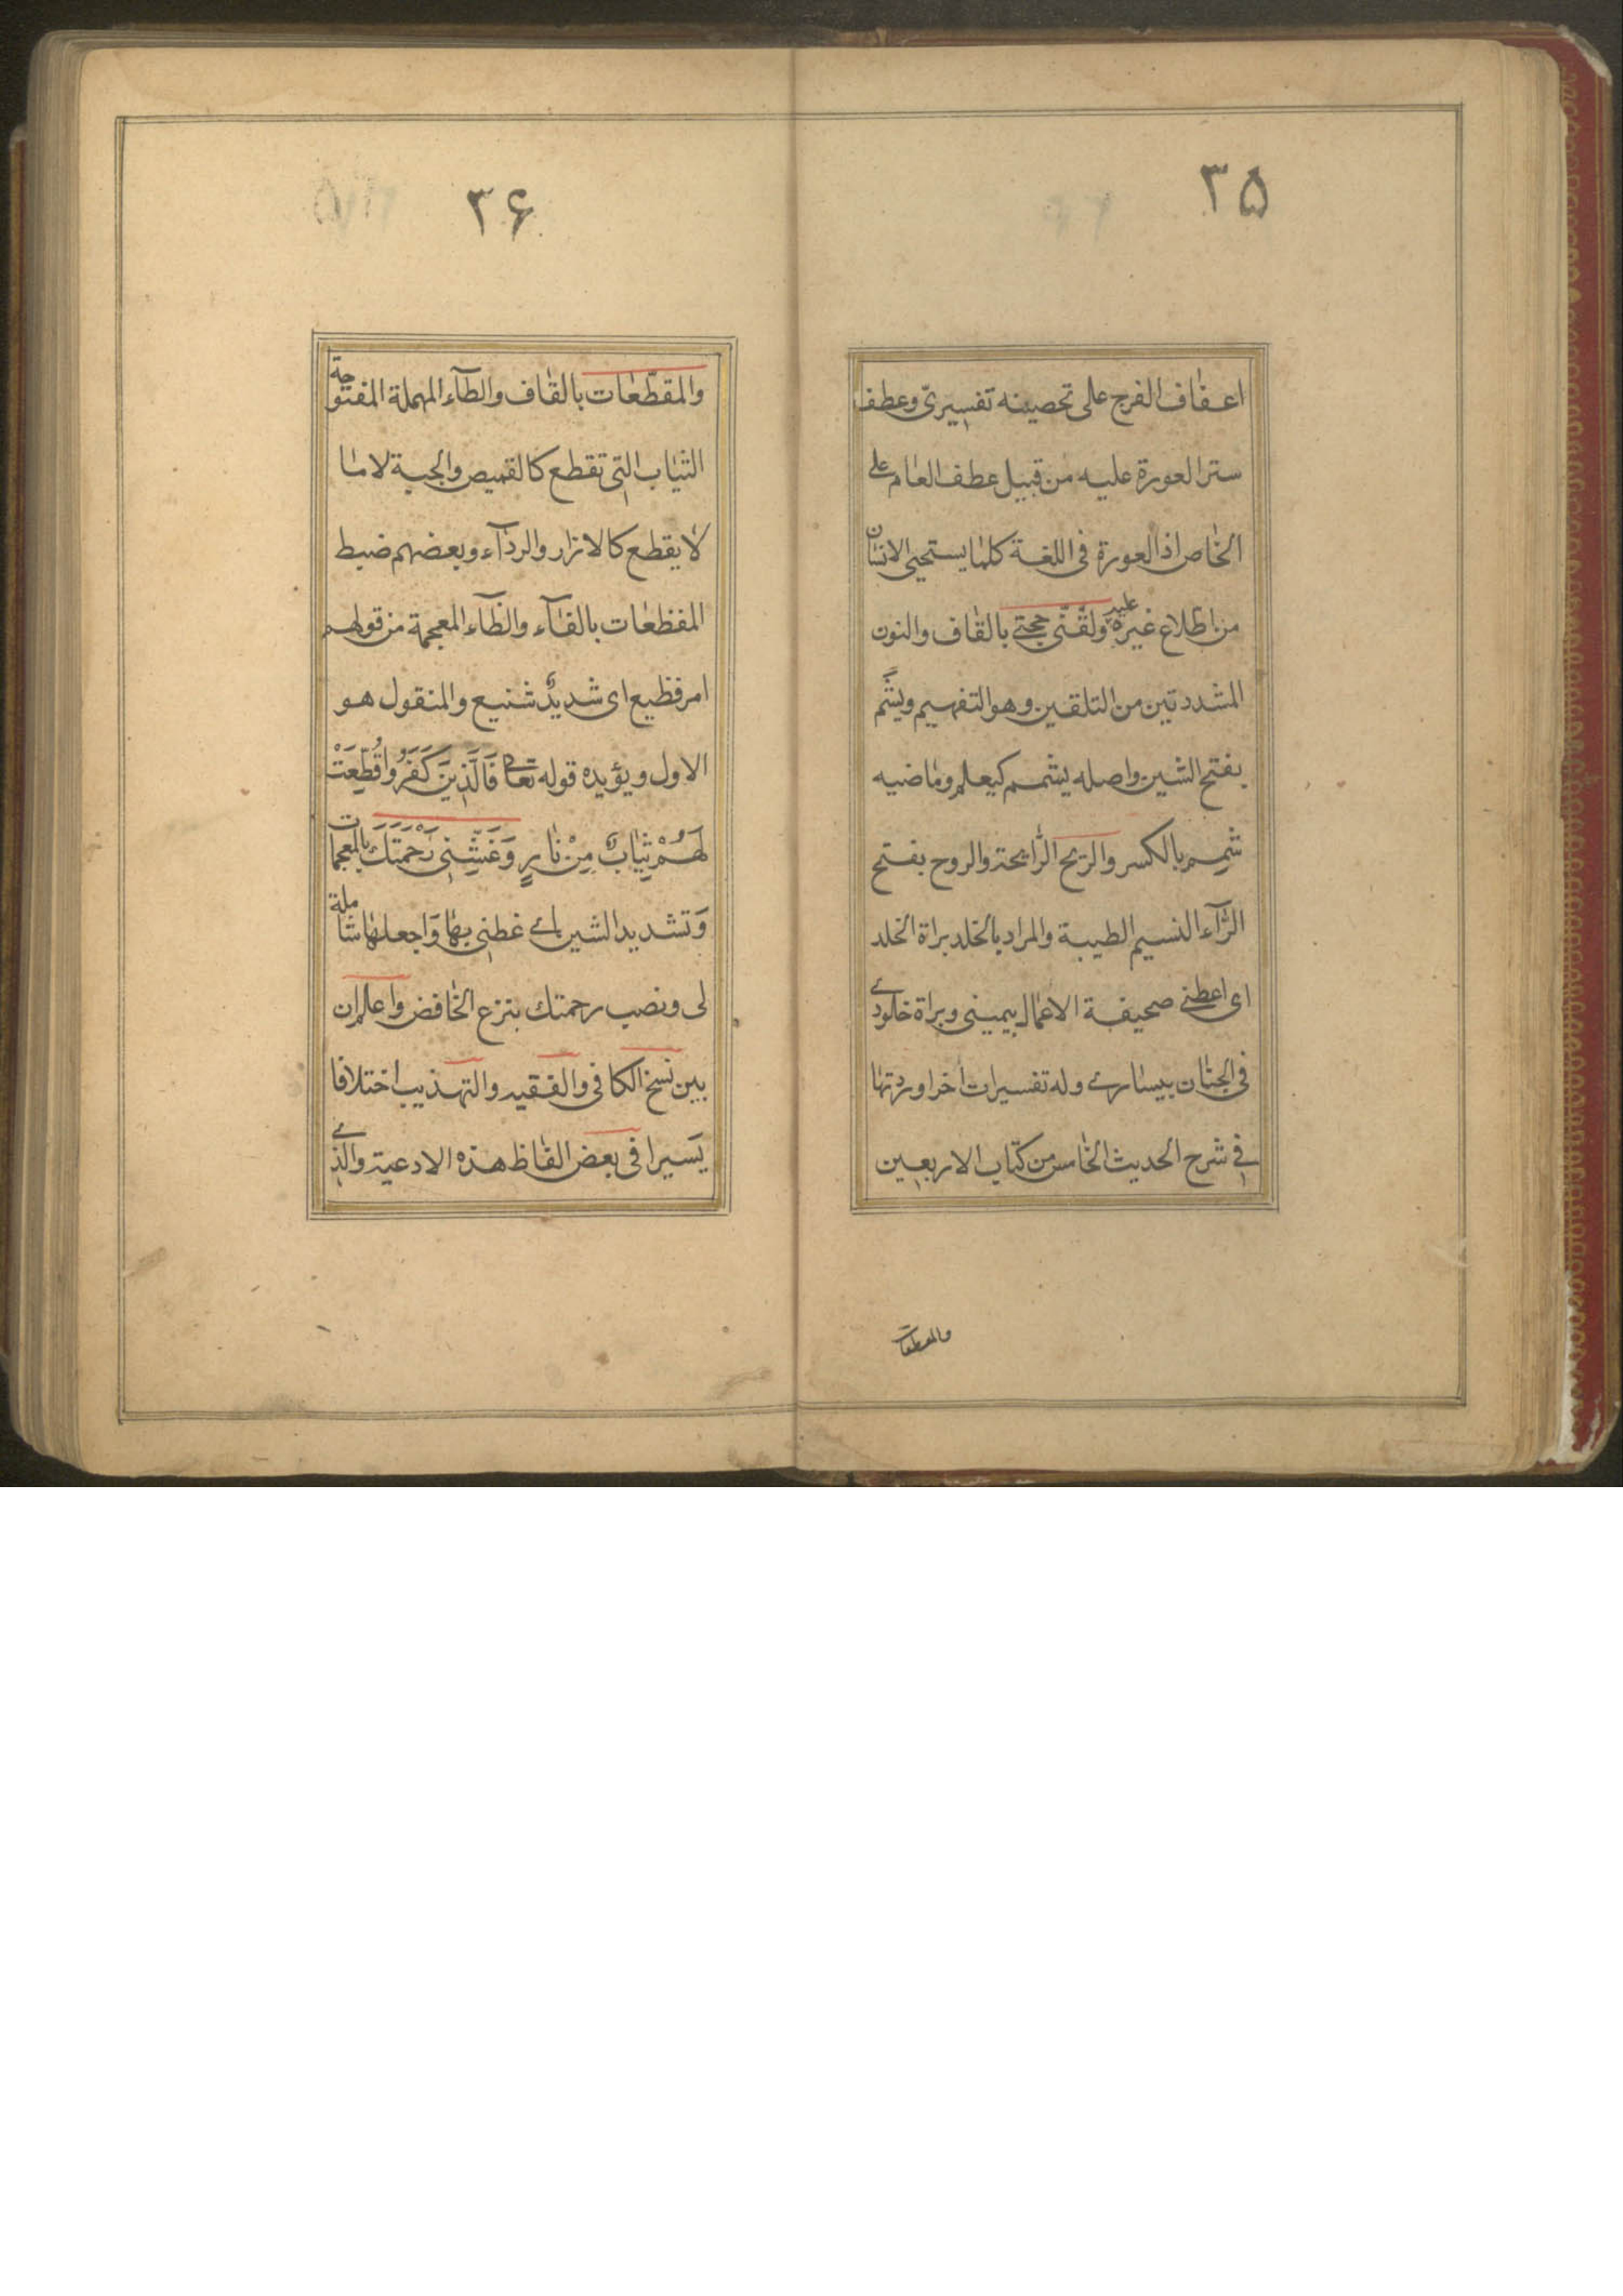 ۳۵
اعفاف الفرج على تحصينه تفسيرىّ وعطف
ستر العورة عليه من قبيل عطف العام على
الخاص اذ العورة فى اللغة كلما يستحيى الانسان
من اطلاع غيره عليه ولقّنّى حجتى بالقاف والنون
المشددتين من التلقين وهو التفهيم ويشَّم
بفتح الشين واصله يشمم كيعلم وماضيه
شمم بالكسر والريح الرائحة والروح بفتح
الرآء النسيم الطيبة والمراد بالخلد براة الخلد
اى اعطنى صحيفة الاعمال بيمينى وبراة خلودى
فى الجنان بيسارى وله تفسيرات اخر اوردتها
فى شرح الحديث الخامس من كتاب الاربعين
والمقطعات
۳۶
والمقطّعات بالقاف والطآء المهملة المفتوحة
الثياب التى تقطع كالقميص والجبة لا ما
لا يقطع كالازار والردآء وبعضهم ضبط
المفظعات بالفآء والظآء المعجمة من قولهم
امر فظيع اى شديدٌ شنيع والمنقول هو
الاول ويؤيده قوله تعالى فَالَّذِينَ كَفَرُوا قُطِّعَتْ
لَهُمْ ثِيَابٌ مِنْ نَارٍ وَغَشِّنِى رَحْمَتَكَ بالمعجمات
وَتشديد الشين اى غطنى بها وَاجعلها شاملة
لى ونصب رحمتك بنزع الخافض واعلم ان
بين نسخ الكافى والفقيه والتهذيب اختلافا
يَسيرا فى بعض الفاظ هذه الادعية والذى